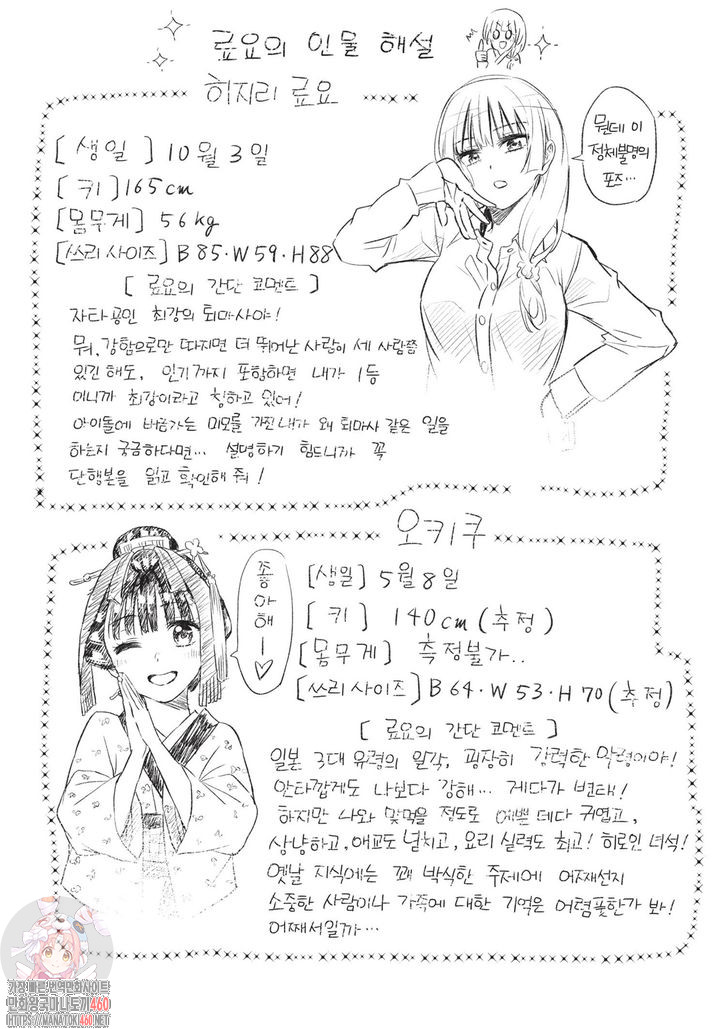 료요의 인물 해설
히지리 료요
뭔데 이
정체불명의
포즈…
[생일] 10월 3일
[키] 165cm
[몸무게] 56kg
[쓰리 사이즈] B85·W59·H88
[료요의 간단 코멘트]
자타공인 최강의 퇴마사야!
뭐, 강함으로만 따지면 더 뛰어난 사람이 세 사람쯤
있긴 해도, 인기까지 포함하면 내가 1등
이니까 최강이라고 칭하고 있어!
아이돌에 버금가는 미모를 가진 내가 왜 퇴마사 같은 일을
하는지 궁금하다면… 설명하기 힘드니까 꼭
단행본을 읽고 확인해 줘!
오키쿠
좋아해ー♡
[생일] 5월 8일
[키] 140cm (추정)
[몸무게] 측정불가..
[쓰리 사이즈] B64·W53·H70 (추정)
[료요의 간단 코멘트]
일본 3대 유령의 일각, 굉장히 강력한 악령이야!
안타깝게도 나보다 강해… 게다가 변태!
하지만 나와 맞먹을 정도로 예쁜 데다 귀엽고,
상냥하고, 애교도 넘치고, 요리 실력도 최고! 히로인 녀석!
옛날 지식에는 꽤 박식한 주제에 어째선지
소중한 사람이나 가족에 대한 기억은 어렴풋한가 봐!
어째서일까…
가장빠른번역만화사이트
만화왕국마나토끼460
HTTPS://MANATOKI460.NET